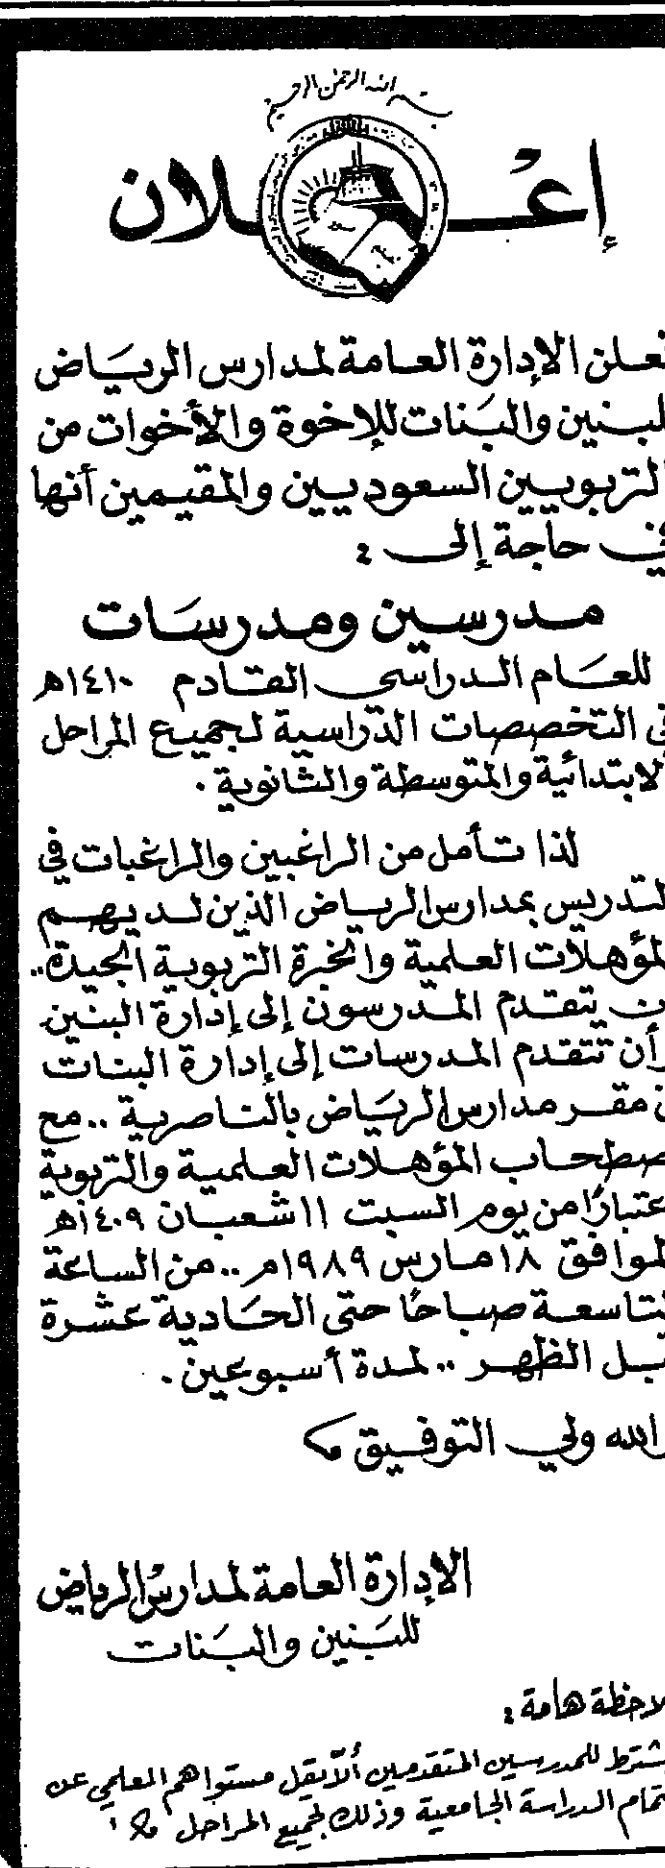 بسم الله الرحمن الرحيم
إعـلان
تعلن الإدارة العامة لمدارس الرياض
للبنين والبنات للإخوة والأخوات من
التربويين السعوديين والمقيمين أنها
في حاجة إلى :
مدرسين ومدرسات
للعام الدراسي القادم ١٤١٠هـ
في التخصصات الدراسية لجميع المراحل
الابتدائية والمتوسطة والثانوية .
لذا تأمل من الراغبين والراغبات في
التدريس بمدارس الرياض الذين لديهم
المؤهلات العلمية والخبرة التربوية الجيدة..
أن يتقدم المدرسون إلى إدارة البنين
وأن تتقدم المدرسات إلى إدارة البنات
في مقر مدارس الرياض بالناصرية .. مع
اصطحاب المؤهلات العلمية والتربوية
اعتبارًا من يوم السبت ١١ شعبان ١٤٠٩هـ
الموافق ١٨ مارس ١٩٨٩م .. من الساعة
التاسعة صباحًا حتى الحادية عشرة
قبل الظهر .. لمدة أسبوعين .
والله ولي التوفيق
الإدارة العامة لمدارس الرياض
للبنين والبنات
ملاحظة هامة :
يشترط للمدرسين المتقدمين ألا يقل مستواهم العلمي عن
إتمام الدراسة الجامعية وذلك لجميع المراحل